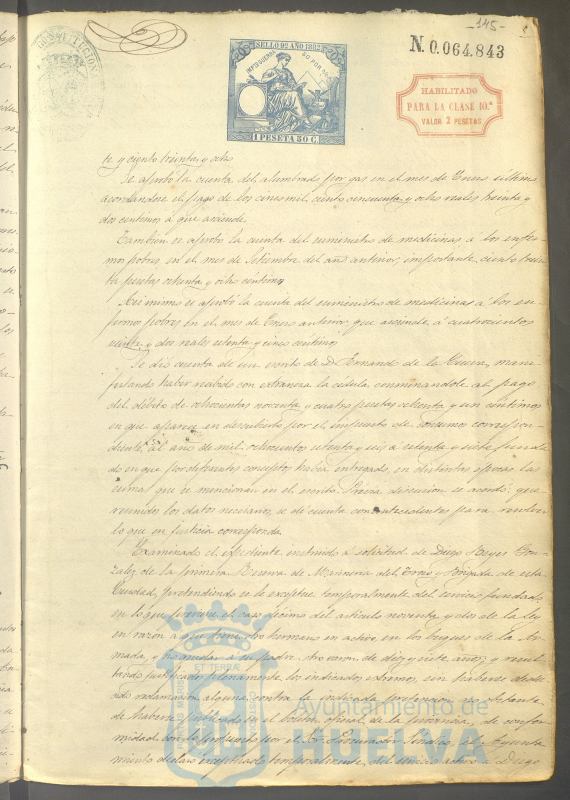 -145-
CONSTITUCION
SELLO 9º AÑO 1882
IMPº GUERRA 50 POR 100
1 PESETA 50 C.
N. 0.064.843
HABILITADO
PARA LA CLASE 10.ª
VALOR 2 PESETAS
te y ciento treinta y ocho
Se aprobó la cuenta del alumbrado por gas en el mes de Enero último
acordandose el pago de los cinco mil ciento cincuenta y ocho reales treinta y
dos centimos á que asciende.
Tambien se aprobó la cuenta del suministro de medicinas á los enfer-
mos pobres en el mes de Setiembre del año anterior, importante ciento trein-
ta pesetas setenta y ocho céntimos
Asi mismo se aprobó la cuenta del suministro de medicinas a los en-
fermos pobres en el mes de Enero anterior que asciende á cuatrocientos
veinte y dos reales setenta y cinco céntimos
Se dió cuenta de un escrito de D. Fernando de la Cueva, mani-
festando haber recibido con extrañeza la cédula conminandole al pago
del débito de ochocientas noventa y cuatro pesetas ochenta y un céntimos
en que aparece en descubierto por el impuesto de consumo correspon-
diente al año de mil ochocientos setenta y seis á setenta y siete funda-
do en que por diferentes conceptos habia entregado en distintas épocas las
sumas que se mencionan en el escrito. Previa discusion se acordó: que
reunidos los datos necesarios, se dé cuenta con antecedentes para resolver
lo que en justicia corresponda.
Examinado el expediente instruido á solicitud de Diego Reyes Gon-
zalez de la primera Reserva de Marineria del Trozo y Brigada de esta
Ciudad, pretendiendo se le exceptue temporalmente del servicio fundado
en lo que previene el caso décimo del articulo noventa y dos de la ley
en razón á que tiene otro hermano en activo en los buques de la Ar-
mada, y no quedar á su padre otro varon de diez y siete años; y resul-
tando justificados plenamente los indicados extremos, sin haberse produ-
cido reclamacion alguna contra la indicada pretension, no obstante
de haberse publicado en el boletin oficial de la provincia, de confor-
midad con lo propuesto por el Sr. Procurador Sindico, el Ayunta-
miento declaró exceptuado temporalmente del servicio activo á Diego
ET TERRÆ
Ayuntamiento de
HUELVA